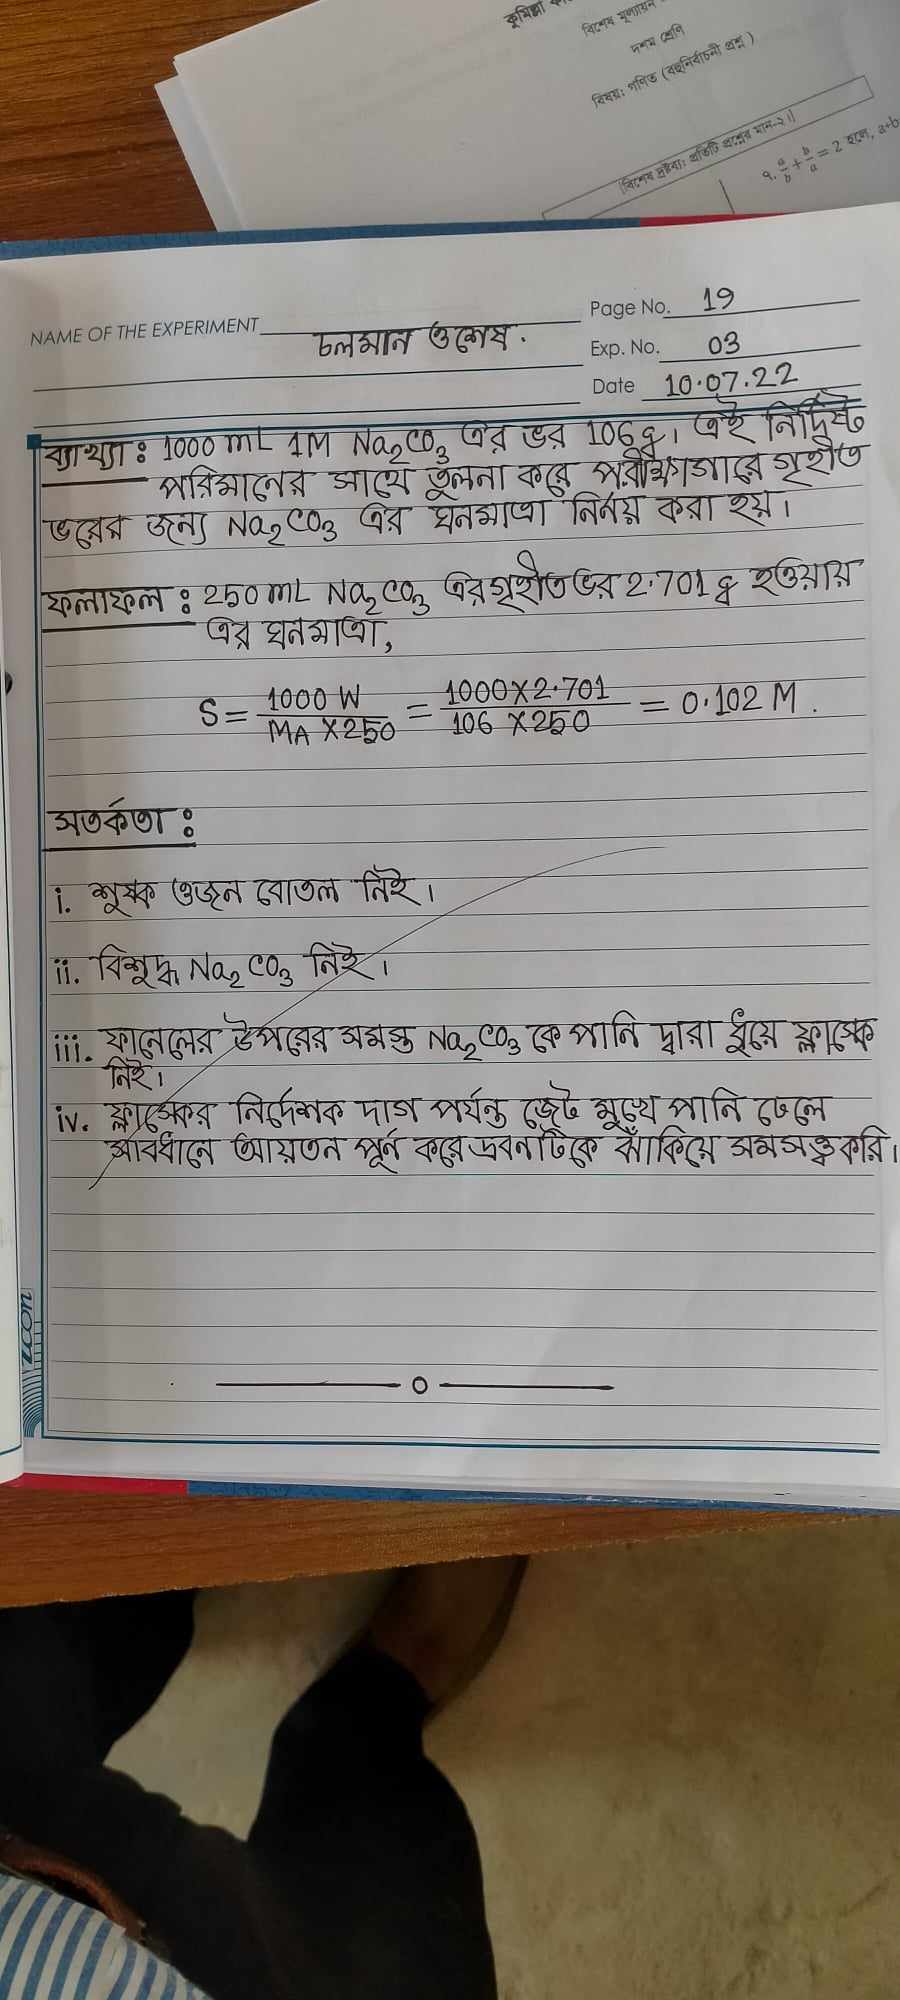 কুমিল্লা
বিশেষ মূল্যায়ন
দশম শ্রেণি
বিষয়: গণিত (বহুনির্বাচনী প্রশ্ন)
[বিশেষ দ্রষ্টব্য: প্রতিটি প্রশ্নের মান-১।]
৭. a/b + b/a = 2 হলে, a+b
Page No. 19
NAME OF THE EXPERIMENT চলমান ও শেষ.
Exp. No. 03
Date 10.07.22
ব্যাখ্যা : 1000 mL 1M Na₂CO₃ এর ভর 106g। এই নির্দিষ্ট
পরিমানের সাথে তুলনা করে পরীক্ষাগারে গৃহীত
ভরের জন্য Na₂CO₃ এর ঘনমাত্রা নির্নয় করা হয়।
ফলাফল : 250 mL Na₂CO₃ এর গৃহীত ভর 2.701 g হওয়ায়
এর ঘনমাত্রা,
S = 1000 W / MA × 250 = 1000×2.701 / 106 × 250 = 0.102 M.
সতর্কতা :
i. শুষ্ক ওজন বোতল নিই।
ii. বিশুদ্ধ Na₂CO₃ নিই।
iii. ফানেলের উপরের সমস্ত Na₂CO₃ কে পানি দ্বারা ধুয়ে ফ্লাস্কে
নিই।
iv. ফ্লাস্কের নির্দেশক দাগ পর্যন্ত জেট মুখে পানি ঢেলে
সাবধানে আয়তন পূর্ন করে দ্রবনটিকে ঝাঁকিয়ে সমসত্ত্ব করি।
icon